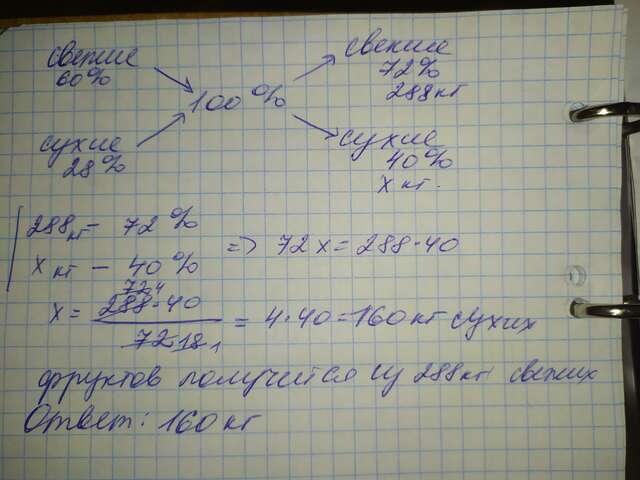 свежие
60%
сухие
28%
100%
свежие
72%
288кг
сухие
40%
х кг.
288кг - 72%
х кг - 40%
=> 72х = 288·40
х = 288·40 / 72 = 4·40 = 160 кг сухих
72 4
18 1
фруктов получится из 288кг свежих
Ответ: 160 кг